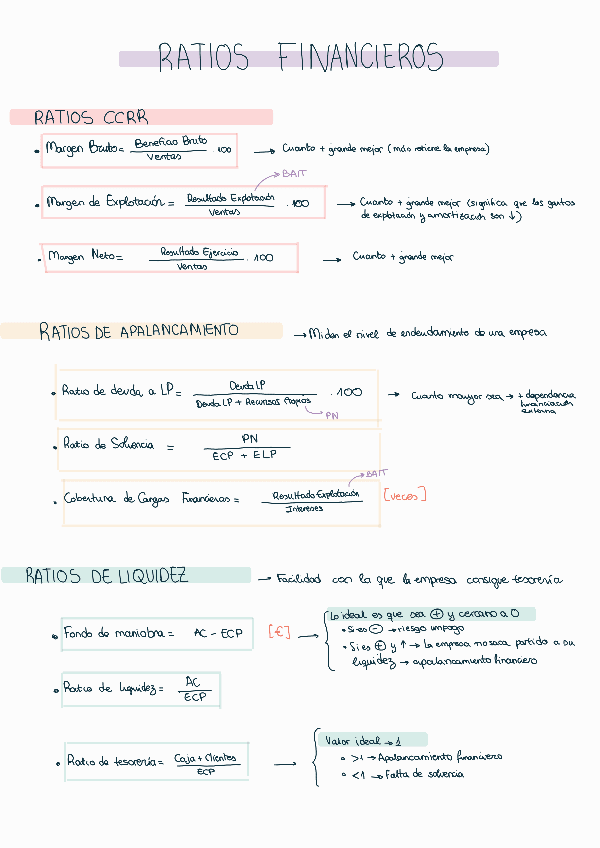 RATIOS FINANCIEROS
RATIOS CCRR
• Margen Bruto = Beneficio Bruto / Ventas · 100 → Cuanto + grande mejor (más retiene la empresa)
→ BAIT
• Margen de Explotación = Resultado Explotación / Ventas · 100 → Cuanto + grande mejor (significa que los gastos
de explotación y amortización son ↓)
• Margen Neto = Resultado Ejercicio / Ventas · 100 → Cuanto + grande mejor
RATIOS DE APALANCAMIENTO → Miden el nivel de endeudamiento de una empresa
• Ratio de deuda a LP = Deuda LP / Deuda LP + Recursos Propios · 100 → Cuanto mayor sea → + dependencia
financiación
externa
→ PN
• Ratio de Solvencia = PN / ECP + ELP
→ BAIT
• Cobertura de Cargas Financieras = Resultado Explotación / Intereses [veces]
RATIOS DE LIQUIDEZ → Facilidad con la que la empresa consigue tesorería
Lo ideal es que sea ⊕ y cercano a 0
• Fondo de maniobra = AC - ECP [€] →
• Si es ⊖ → riesgo impago
• Si es ⊕ y ↑ → La empresa no saca partido a su
liquidez → apalancamiento financiero
• Ratio de liquidez = AC / ECP
Valor ideal → 1
• Ratio de tesorería = Caja + Clientes / ECP →
• >1 → Apalancamiento financiero
• <1 → Falta de solvencia